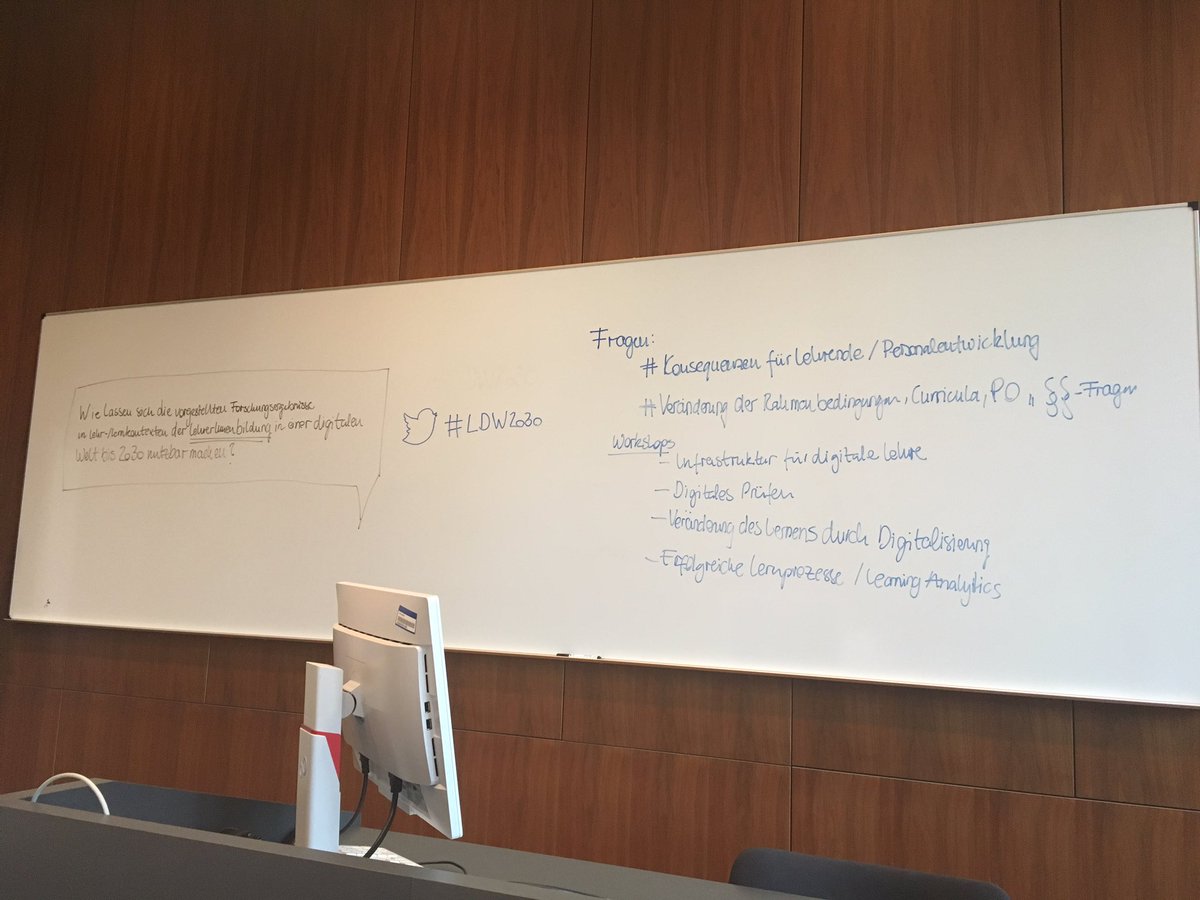 Wie lassen sich die vorgestellten Forschungsergebnisse
in Lehr-/Lernkontexten der LehrerInnenbildung in einer digitalen
Welt bis 2030 nutzbar machen?
#LDW2030
Fragen:
# Konsequenzen für Lehrende / Personalentwicklung
# Veränderung der Rahmenbedingungen, Curricula, PO,, §§-Fragen
Workshops
- Infrastruktur für digitale Lehre
- Digitales Prüfen
- Veränderung des Lernens durch Digitalisierung
- Erfolgreiche Lernprozesse / Learning Analytics